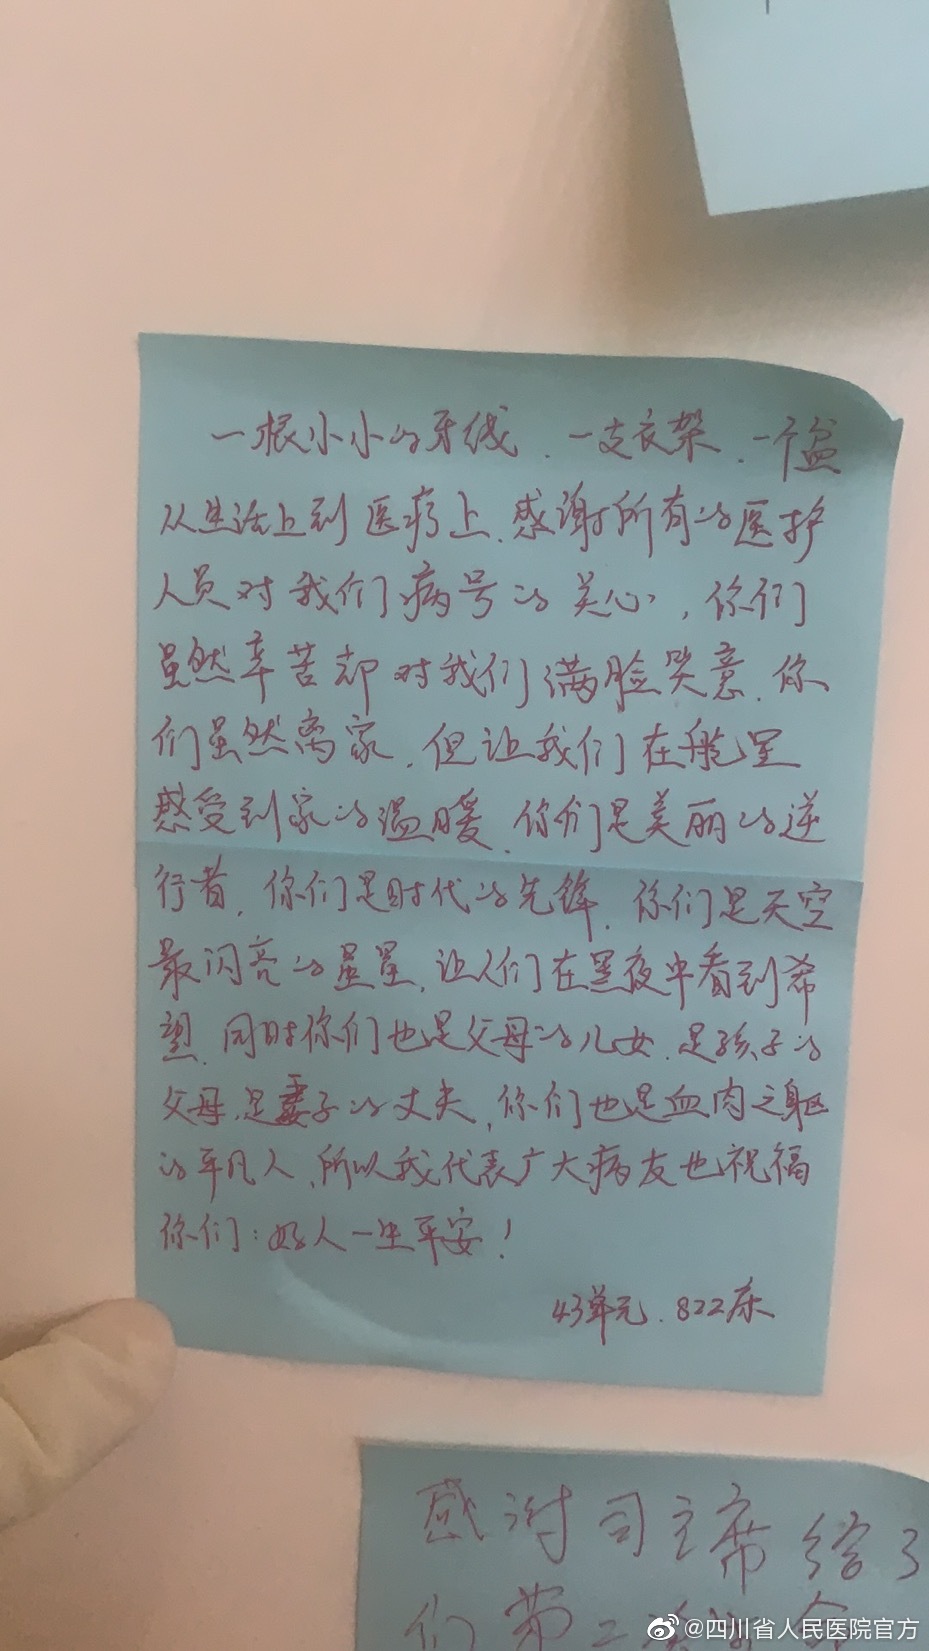 一根小小的牙线、一支衣架、一个盆
从生活上到医疗上、感谢所有的医护
人员对我们病号的关心，你们
虽然辛苦却对我们满脸笑意、你
们虽然离家，但让我们在舱里
感受到家的温暖、你们是美丽的逆
行者，你们是时代的先锋、你们是天空
最闪亮的星星，让人们在黑夜中看到希
望、同时你们也是父母的儿女、是孩子的
父母、是妻子的丈夫，你们也是血肉之躯
的平凡人、所以我代表广大病友也祝福
你们：好人一生平安！
43单元、822床
感谢司主席给了
们带
@四川省人民医院官方